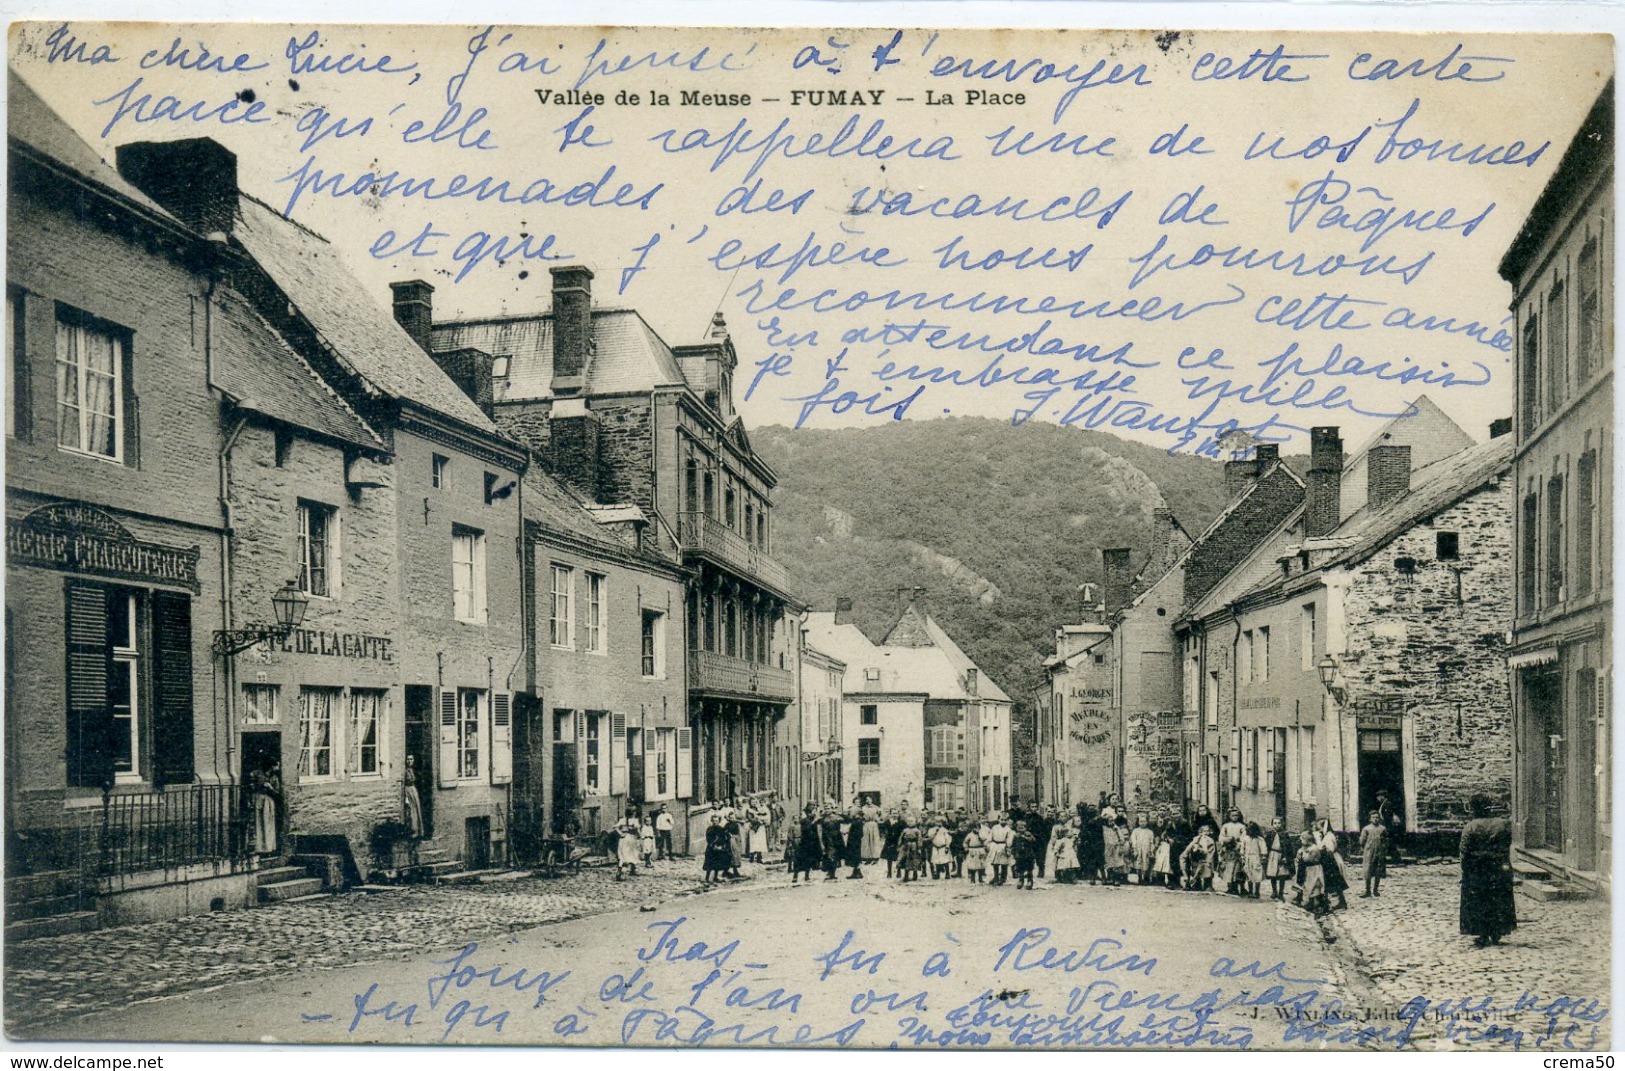 Ma chère Lucie, J'ai pensé à t'envoyer cette carte
Vallée de la Meuse — FUMAY — La Place
parce qu'elle te rappellera une de nos bonnes
promenades des vacances de Pâques
et que j'espère nous pourrons
recommencer cette année
En attendant ce plaisir
je t'embrasse mille
fois.
CHARCUTERIE
DE LA GAITE
J. GEORGES
MEUBLES
EN
Iras-tu à Revin au
jour de l'an ou ne viendras
-tu qu'à Pâques
toujours
J. WINLING, Edit., Charleville
crema50